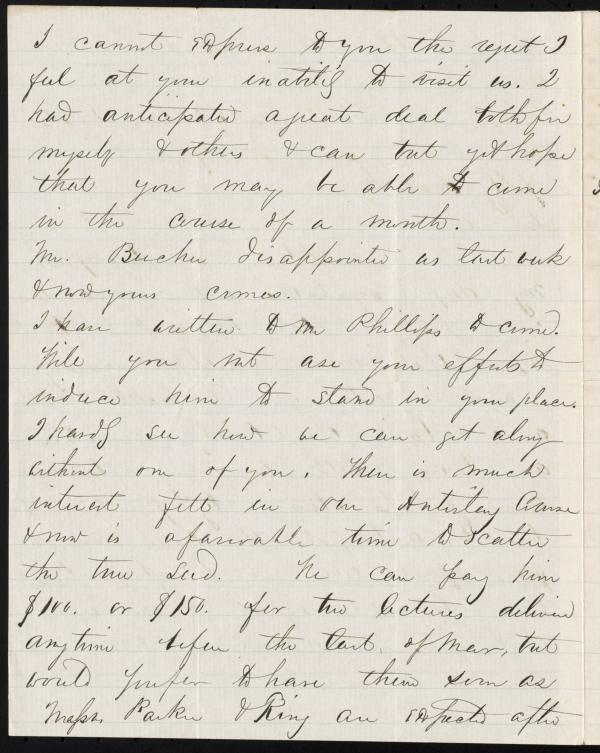 I cannot express to you the regret I
feel at your inability to visit us. I
had anticipated a great deal both for
myself & others & can but yet hope
that you may be able to come
in the course of a month.
Mr. Beecher disappointed us last week
& now yours comes.
I have written to Mr Phillips to come.
Will you not use your efforts to
induce him to stand in your place.
I hardly see how we can get along
without one of you. There is much
interest felt in our Antislavery Course
& now is a favorable time to scatter
the true seed. We can pay him
$100. or $150. for two lectures delivered
anytime before the last of Mar, but
would prefer to have them soon as
Messrs. Parker & King are expected after